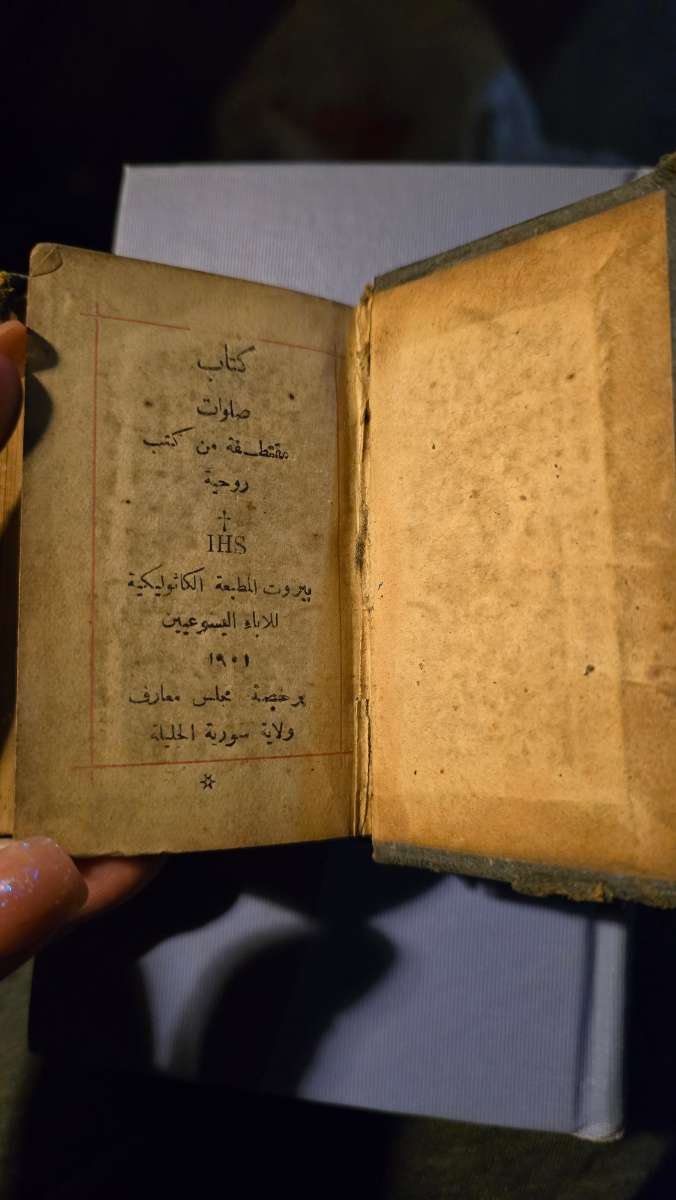 كتاب
صلوات
مقتطفة من كتب
روحية
IHS
بيروت المطبعة الكاثوليكية
للاباء اليسوعيين
١٩٠١
برخصة مجلس معارف
ولاية سورية الجليلة